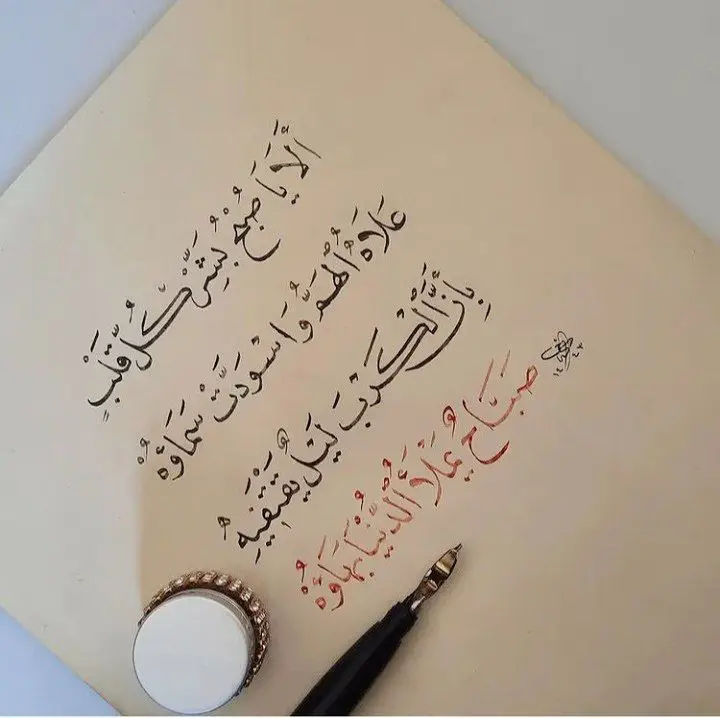 أَلَا يَا صُبْحُ بَشِّرْ كُلَّ قَلْبٍ
عَلَاهُ الْهَمُّ وَاسْوَدَّتْ سَمَاؤُهُ
بِأَنَّ الْكَرْبَ لَيْلٌ يَقْتَفِيهِ
صَبَاحٌ يَمْلَأُ الدُّنْيَا بَهَاؤُهُ